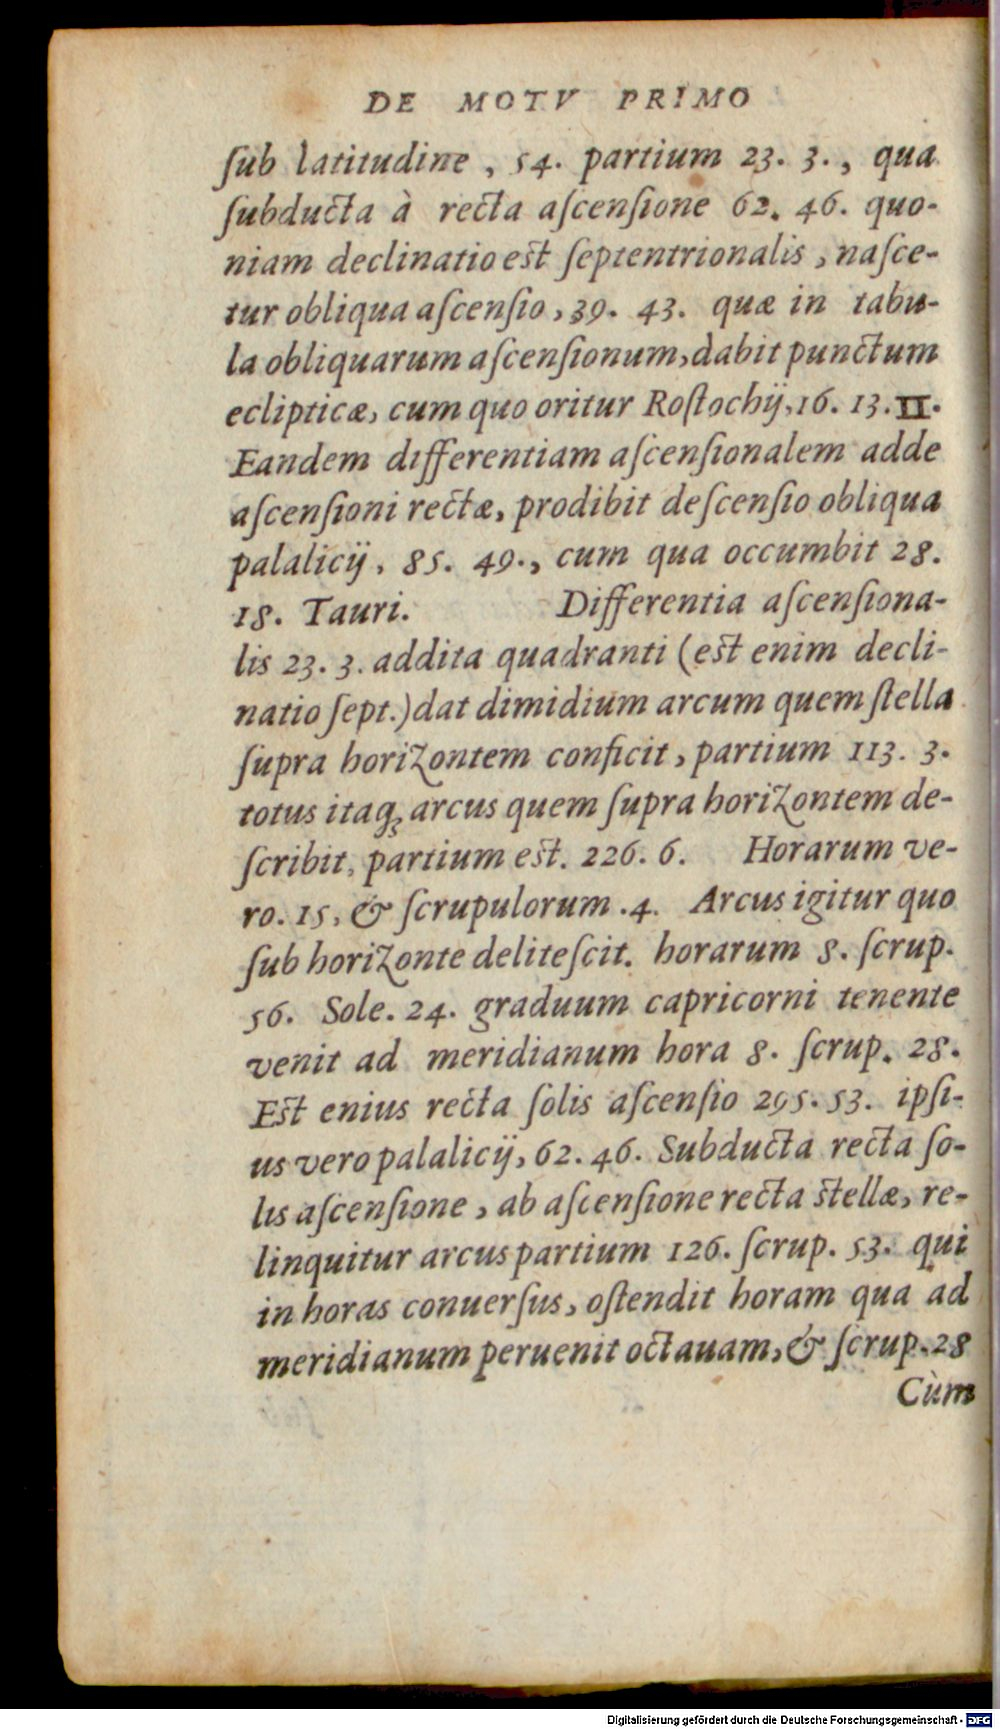 DE MOTV PRIMO
ſub latitudine, 54. partium 23. 3., qua
ſubducta à recta aſcenſione 62. 46. quo-
niam declinatio est ſeptentrionalis, naſce-
tur obliqua aſcenſio, 39. 43. quæ in tabu-
la obliquarum aſcenſionum, dabit punctum
eclipticæ, cum quo oritur Roſtochij, 16. 13. ♊.
Eandem differentiam aſcenſionalem adde
aſcenſioni rectæ, prodibit deſcenſio obliqua
palalicij, 85. 49., cum qua occumbit 28.
18. Tauri. Differentia aſcenſiona-
lis 23. 3. addita quadranti (est enim decli-
natio ſept.) dat dimidium arcum quem ſtella
ſupra horizontem conficit, partium 113. 3.
totus itaq; arcus quem ſupra horizontem de-
ſcribit, partium est. 226. 6. Horarum ve-
ro. 15, & ſcrupulorum .4. Arcus igitur quo
ſub horizonte deliteſcit. horarum 8. ſcrup.
56. Sole. 24. graduum capricorni tenente
venit ad meridianum hora 8. ſcrup. 28.
Est enius recta ſolis aſcenſio 295. 53. ipſi-
us vero palalicij, 62. 46. Subducta recta ſo-
lis aſcenſione, ab aſcenſione recta stellæ, re-
linquitur arcus partium 126. ſcrup. 53. qui
in horas conuerſus, oſtendit horam qua ad
meridianum peruenit octauam, & ſcrup. 28
Cùm
Digitalisierung gefördert durch die Deutsche Forschungsgemeinschaft - DFG